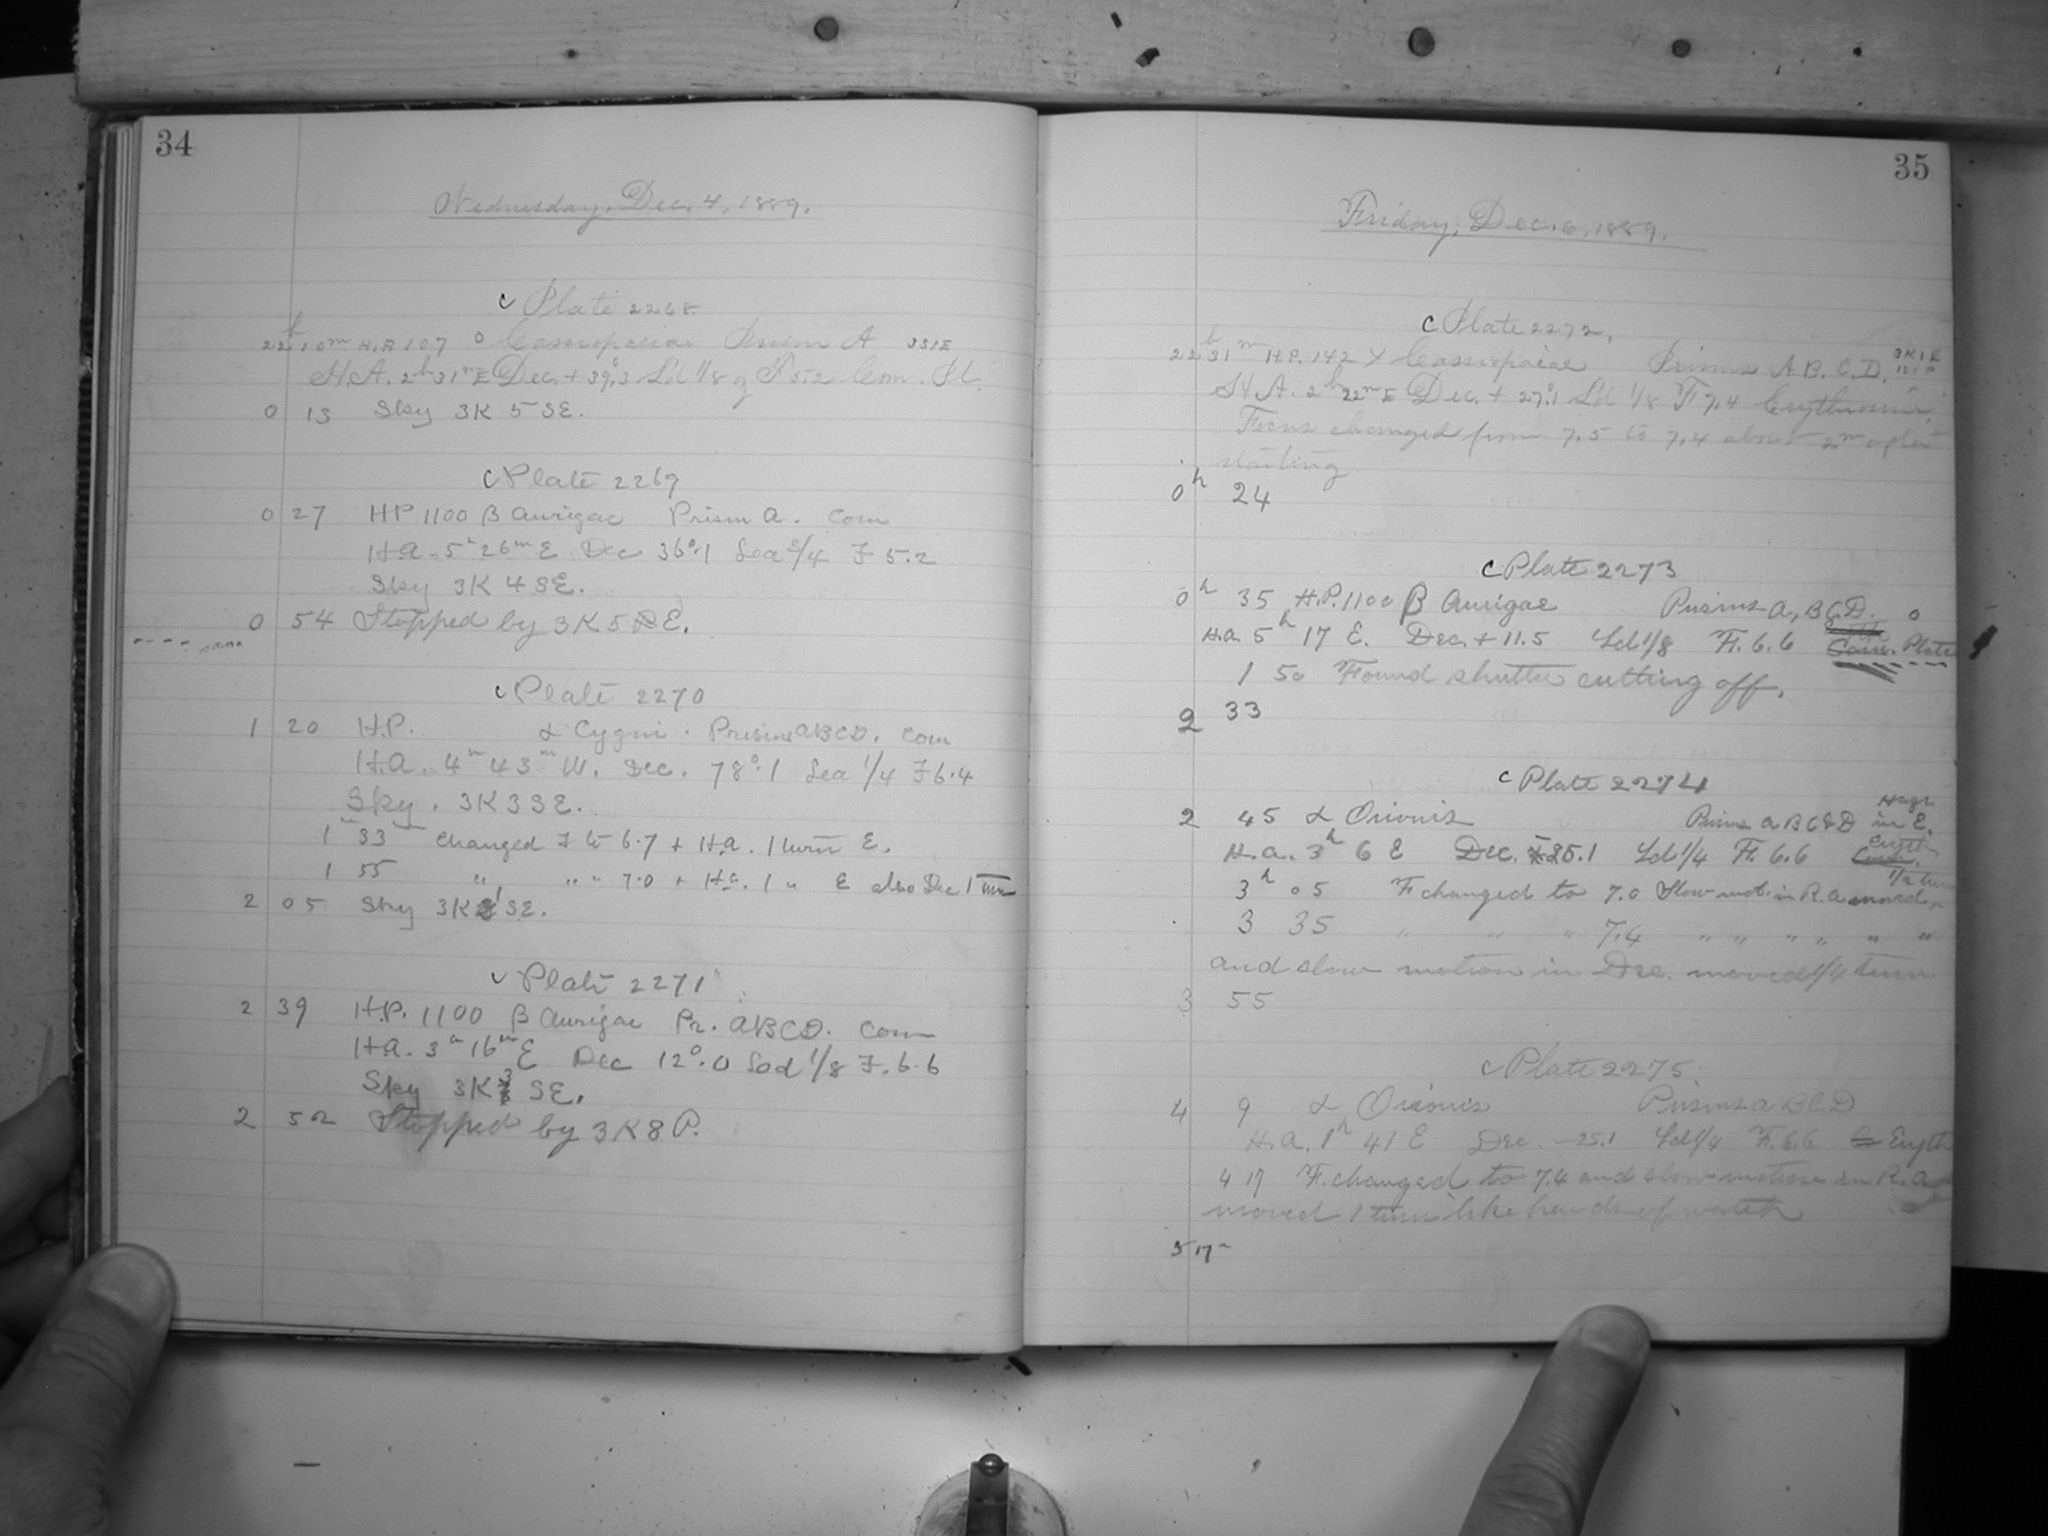 34
Wednesday, Dec. 4, 1889.
c Plate 2268
22h 10m H.P. 107 o Cassiopaiae Prism A 3S1E
H.A. 2h 31m E Dec. + 39°.3 Ld 1/8 F 5.2 Com. Pl.
0 13 Sky 3K 5 SE.
c Plate 2269
0 27 HP 1100 β Aurigae Prism A. Com
H.A. 5h 26m E Dec 36°.1 Lea 2/4 F 5.2
Sky 3K 4 SE.
0 54 Stopped by 3K 5 E.
c Plate 2270
1 20 H.P. α Cygni. Prisms ABCD. Com
H.A. 4m 43m W. Dec. 78°.1 Lea 1/4 F 6.4
Sky. 3K 3 SE.
1 33 Changed F to 6.7 + H.A. 1 turn E.
1 55 " " " 7.0 + H.A. 1 " E also Dec 1 turn
2 05 Sky 3K 1 SE.
c Plate 2271
2 39 H.P. 1100 β Aurigae Pr. ABCD. Com
H.A. 3h 16m E Dec 12°.0 Lod 1/8 F. 6.6
Sky 3K 3 SE.
2 52 Stopped by 3K 8 P.
35
Friday, Dec. 6, 1889.
c Plate 2272,
22h 31m H.P. 142 γ Cassiopaiae Prisms A.B.C.D. 3K1E
H.A. 2h 22m E Dec. + 27°.1 Ld 1/8 F 7.4 Erythrosin
Focus changed from 7.5 to 7.4 about 2m after
starting
0h 24
c Plate 2273
0h 35 H.P. 1100 β Aurigae Prisms A, B C D.
H.A. 5h 17 E. Dec. + 11.5 Ld 1/8 F. 6.6 Com. Plate
1 50 Found shutter cutting off.
2 33
c Plate 2274
2 45 α Orionis Prisms A B C & D in E.
H.A. 3h 6 E Dec. -25.1 Ld 1/4 F. 6.6 Eryth Com.
1/2 turn
3h 05 F changed to 7.0 Slow mot. in R.A. moved
3 35 " " " 7.4 " " " " " "
and slow motion in Dec. moved 1/4 turn
3 55
c Plate 2275
4 9 α Orionis Prisms A B C D
H.A. 1h 41 E Dec. -25.1 Ld 1/4 F. 6.6 Eryth
4 17 F. changed to 7.4 and slow motion in R.A
moved 1 turn like hands of watch
5 17